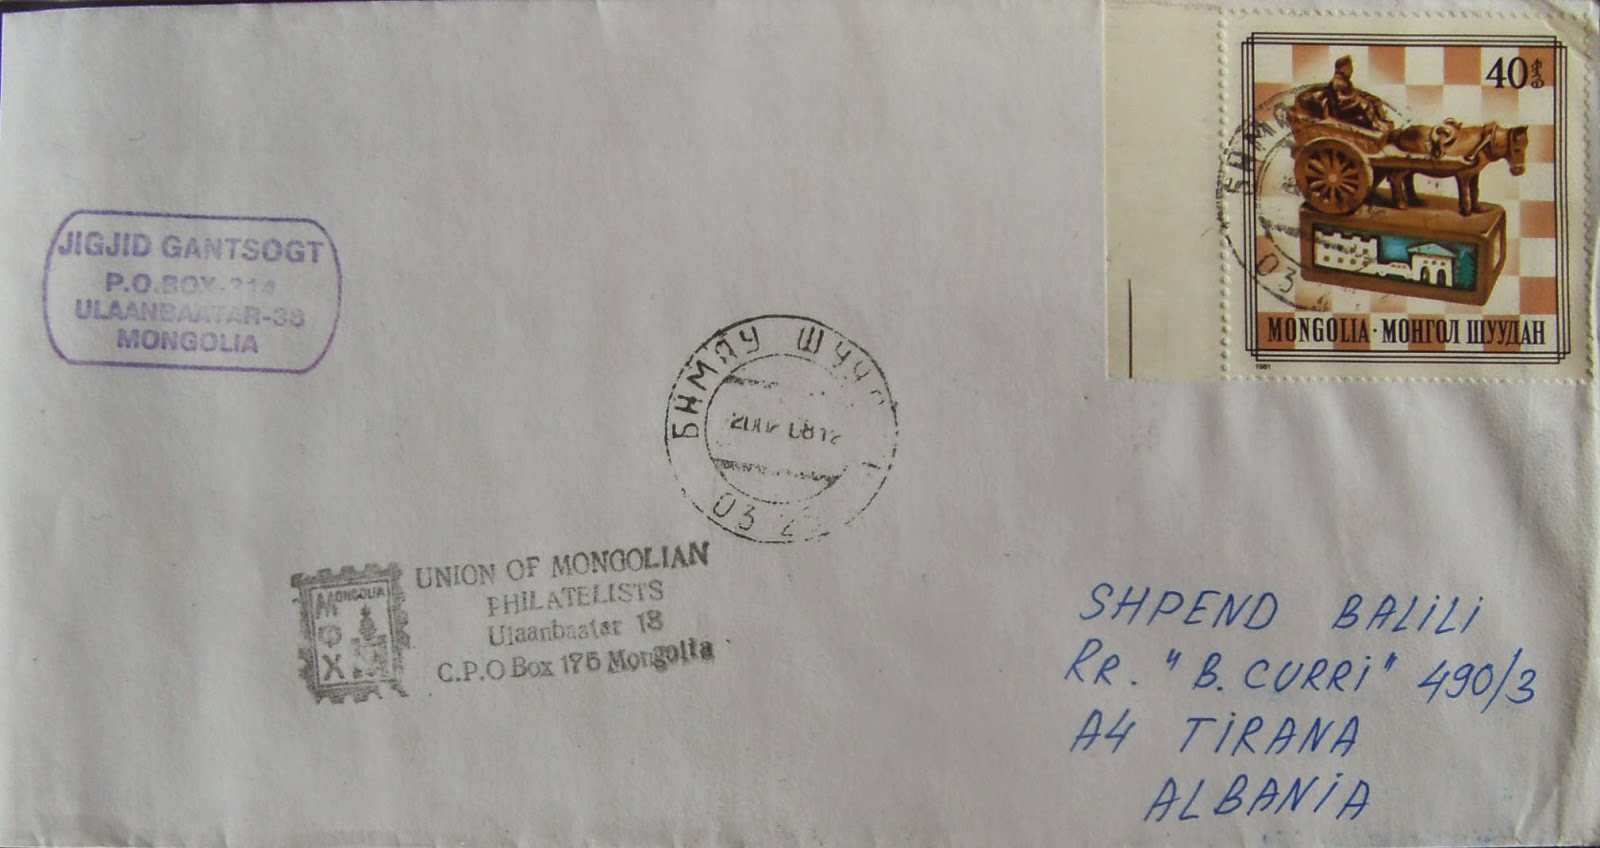 40
MONGOLIA · МОНГОЛ ШУУДАН
1981
БНМ
03
JIGJID GANTSOGT
P.O.BOX-214
ULAANBAATAR-38
MONGOLIA
БНМАУ ШУУ
03 2
MONGOLIA
UNION OF MONGOLIAN
PHILATELISTS
Ulaanbaatar 18
C.P.O Box 175 Mongolia
SHPEND BALILI
RR. "B. CURRI" 490/3
A4 TIRANA
ALBANIA